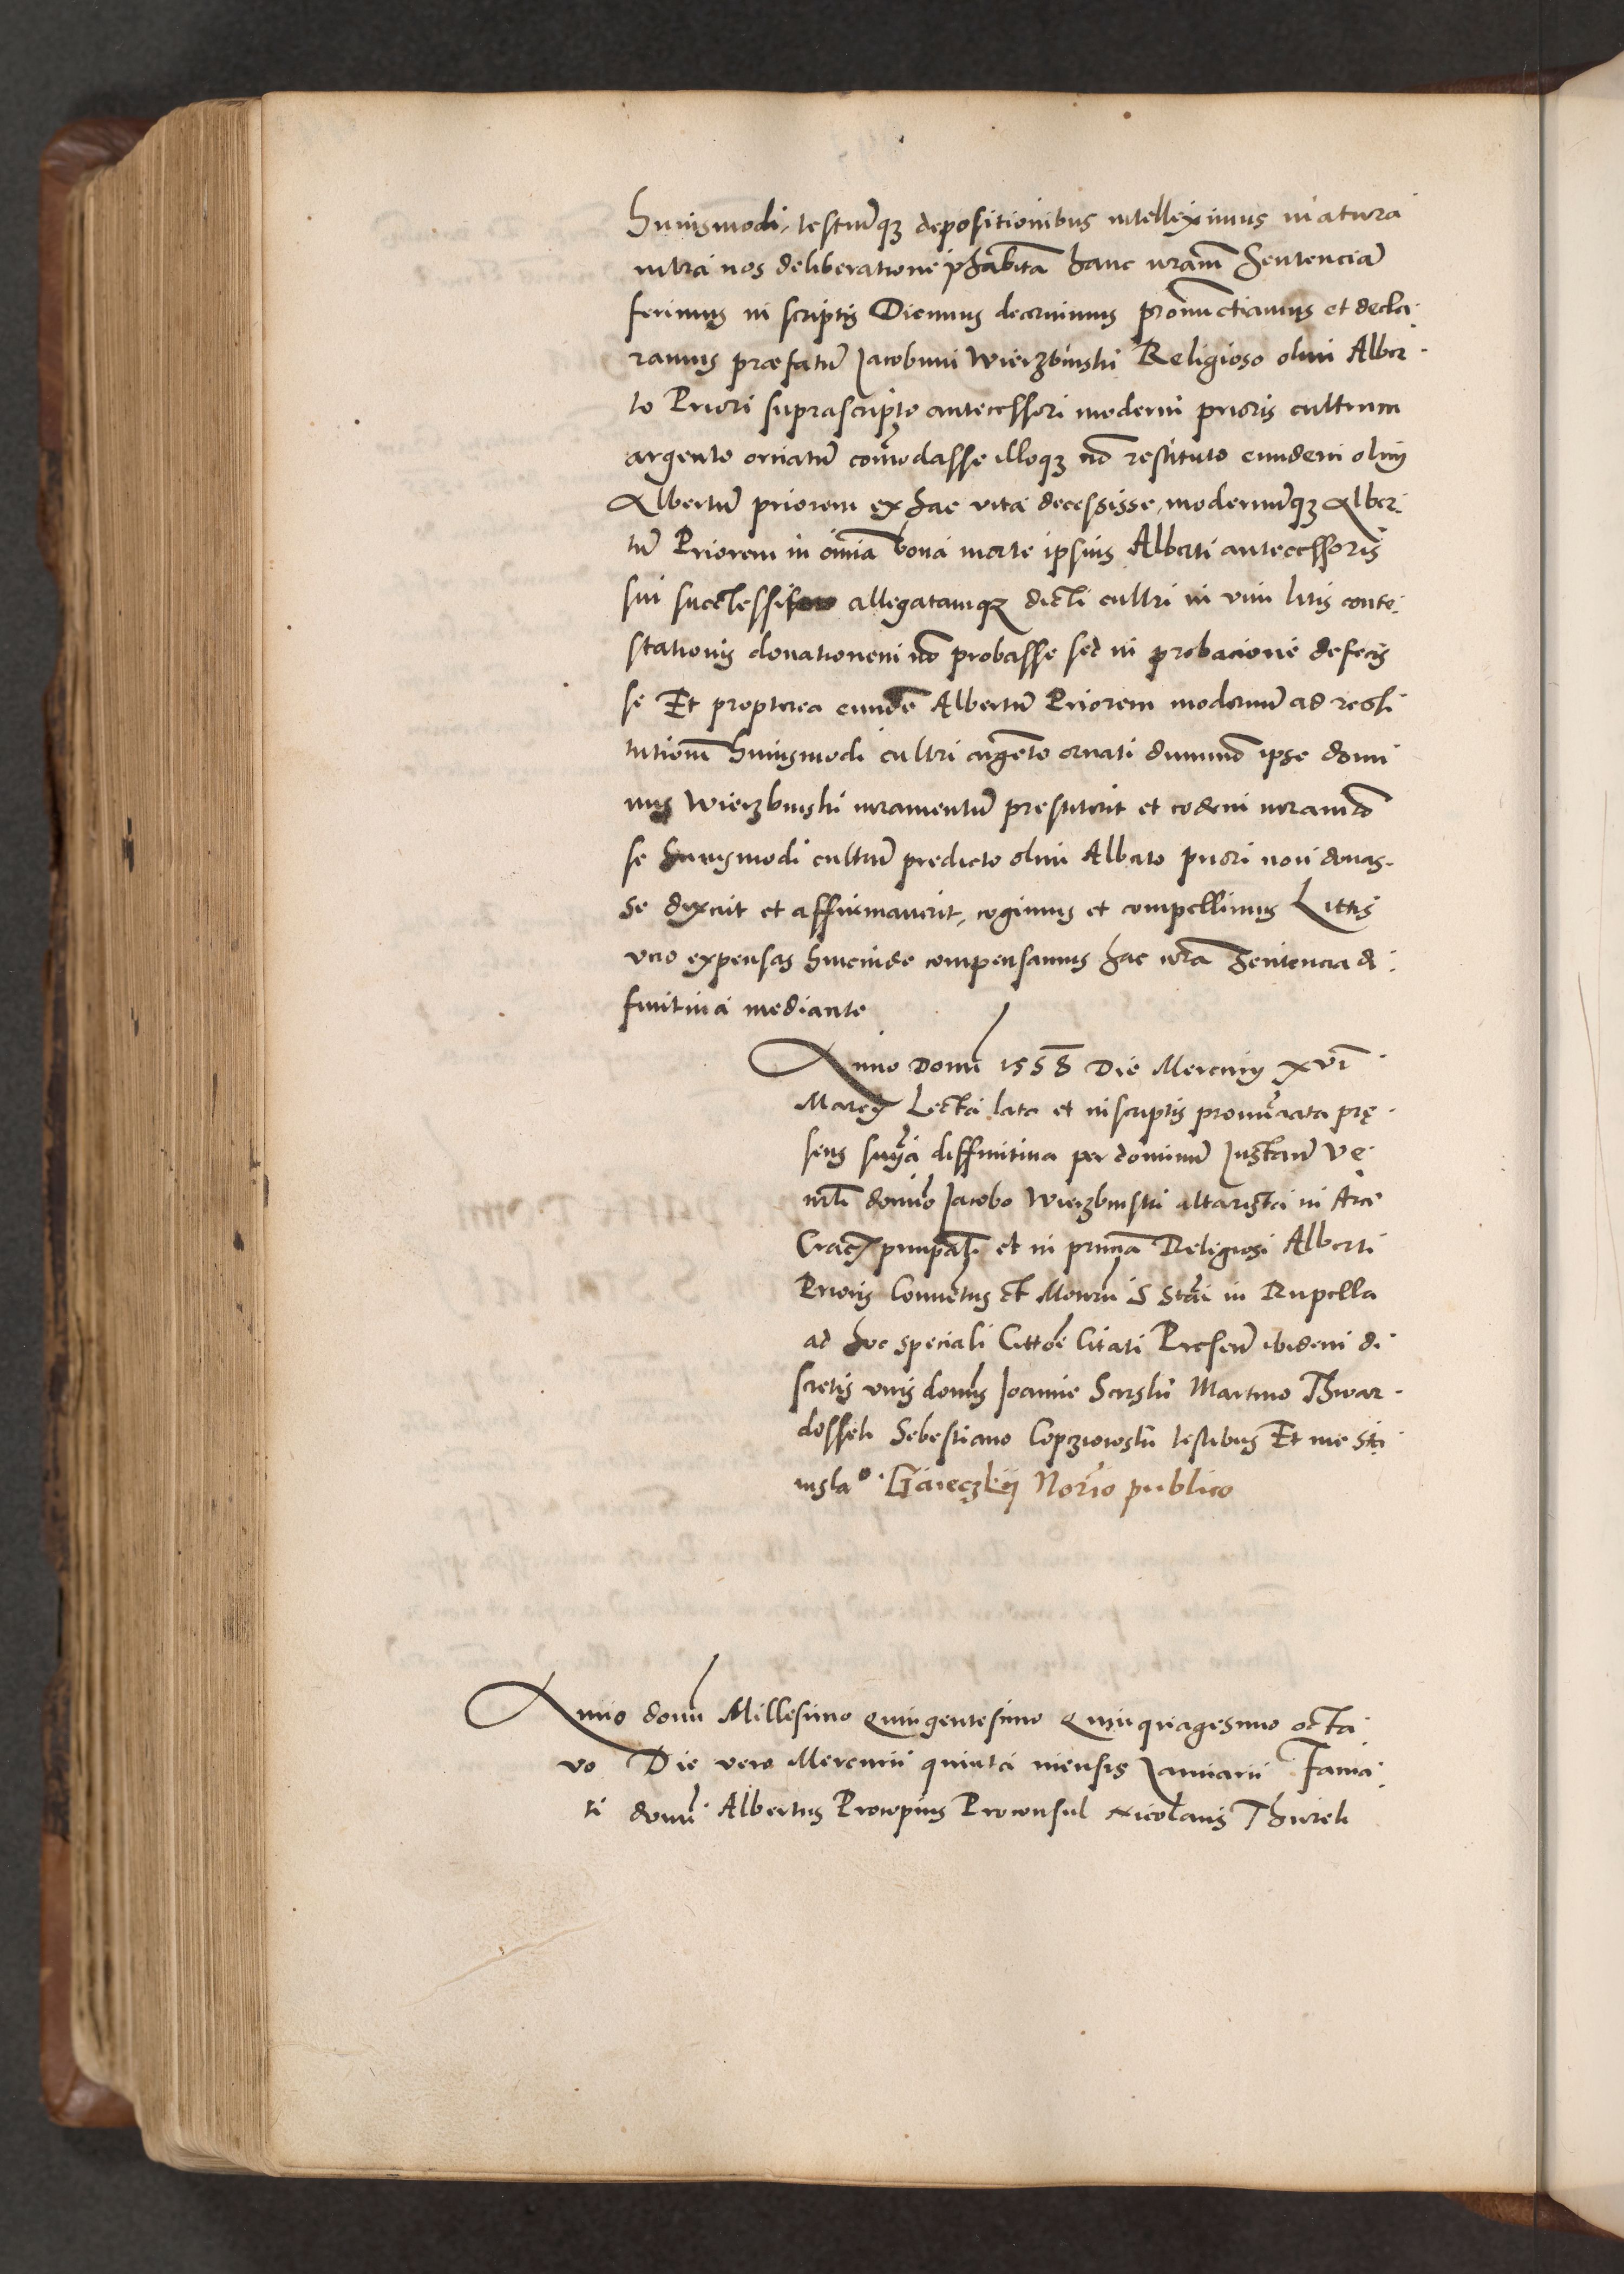 huiusmodi, testiumq3 depositionibus intelleximus matura
intra nos deliberatione phabita hanc nram Sentenciā
ferimus in scriptis Dicimus decernimus pronunctiamus et decla
ramus præfatū Jacobum Wierzbinski Religioso olim Alber
to Priori suprascripto antecessori moderni prioris cultrum
argento ornatū comodasse illoq3 nō restituto eundem olim
Albertū priorem ex hac vita decessisse, modernūq3 Alber
tū Priorem in omīa bona morte ipsius Alberti antecessoris
sui successisse allegatamq3 dicti cultri in vim litis conte
stationis donationem nō probasse sed in probacione defecis
se Et propterea eundē Albertū Priorem modernū ad resti
tutionem huiusmodi cultri argēto ornati dummō ipse domi
nus Wierzbinski iuramentū prestiterit et eodem iurandō
se huiusmodi cultrū predicto olim Alberto priori non donas
se dixerit et affirmaverit, cogimus et compellimus Littis
vero expensas hincinde compensamus hac nrā Sentencia di
finitiva mediante
Anno Domi 1558 Die Mercurij xvi
Marcij Lecta lata et in scriptis pronuciata pre
sens snīa diffinitiva per dominū Instanē Ve
nrli domīo Jacobo Wierzbinski altarista in Arce
Crac principali et in pnciā Religiosi Alberti
Prioris Conventus et Monrii S Stai in Rupella
ad hoc speciali Cittoe Citati Presen ibidem di
scretis viris domis Joanne Serski Martino Thwar
dosski Sebestiano Copziowski testibus Et me Sta
nisla° Gaieczkij Norio publico
Anno domi Millesimo Quingentesimo Quinquagesimo octa
vo Die vero Mercurii quinta mensis Januarii Fama
ti domi Albertus Procopius Proconsul Nicolaus Thurek